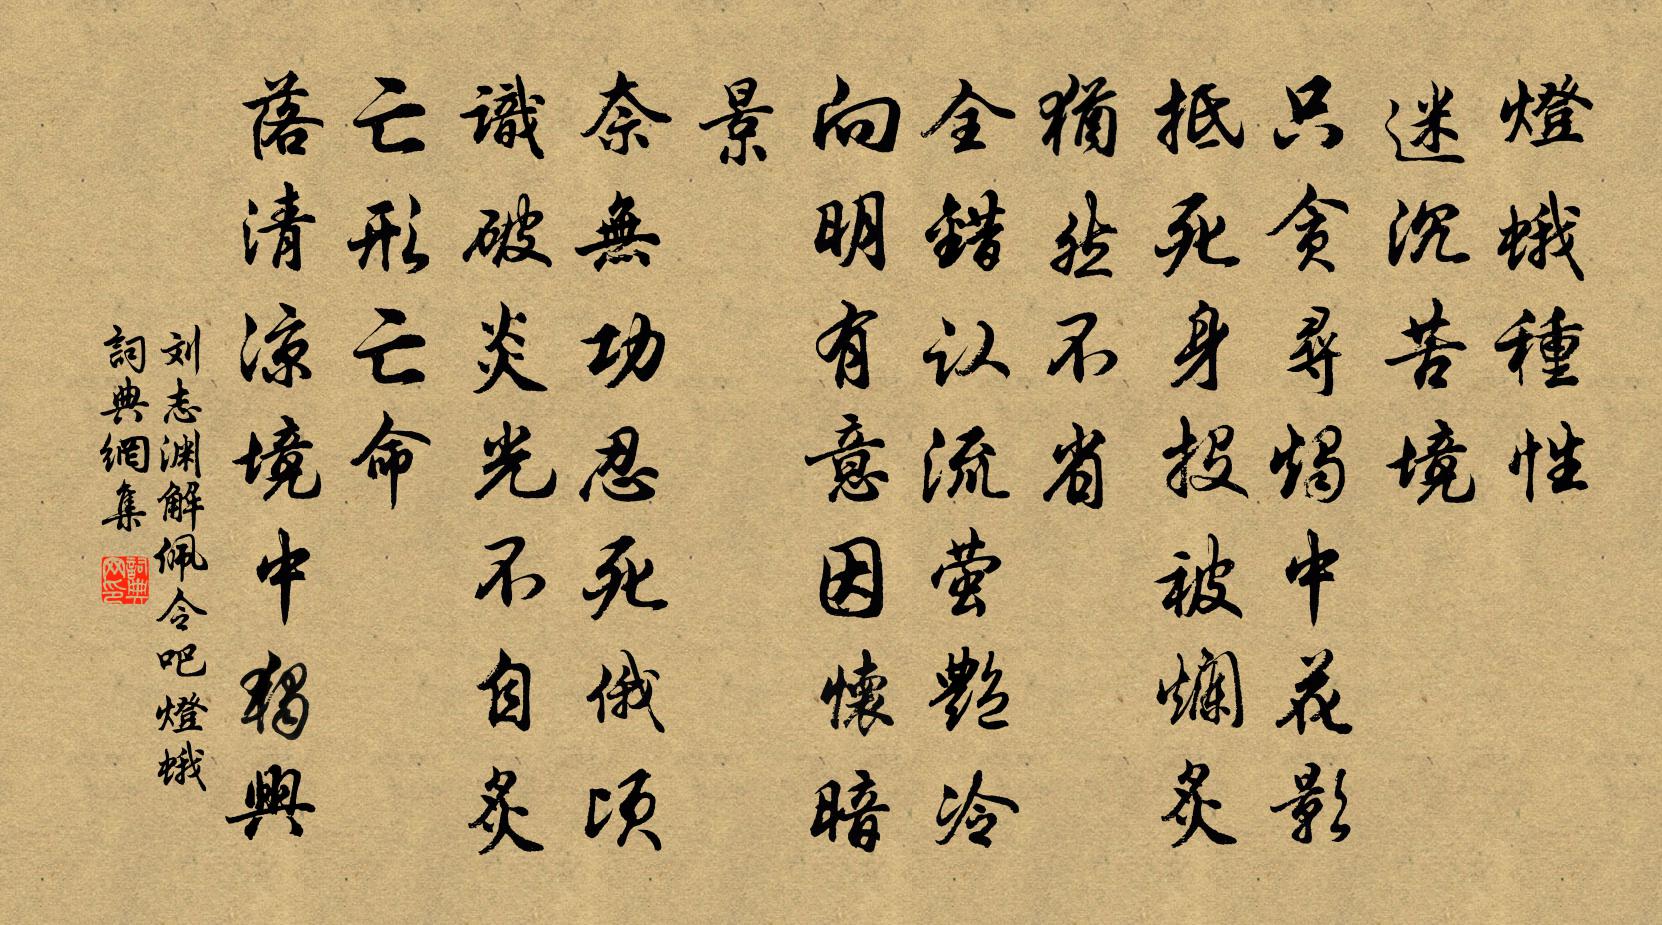 燈蛾種性
迷沉苦境
只贪尋燭中花影
抵死身投被爛炙
猶然不省
全錯认流萤艷冷
向明有意因懷暗
景
奈無功忍死俄頃
識破炎光不自炙
亡形亡命
落清凉境中獨興
刘志渊解佩令吧燈蛾
詞典網集
詞典网印